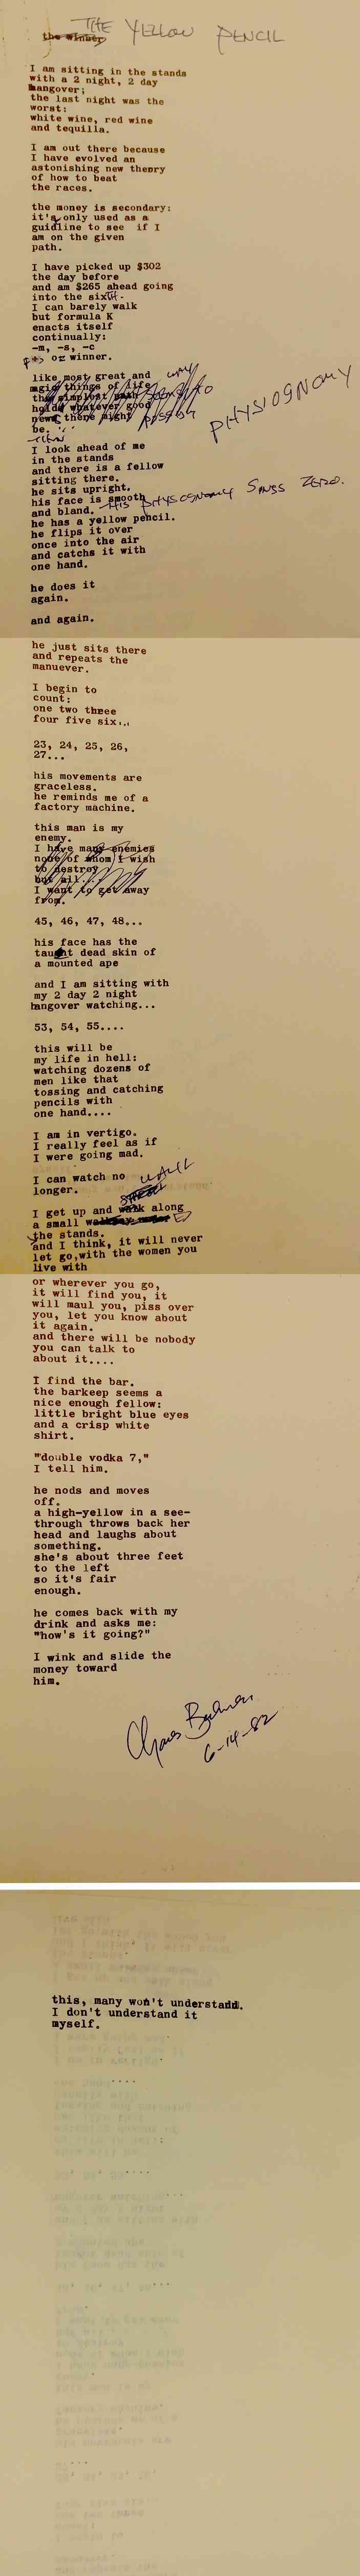 THE YELLOW PENCIL
the winner
I am sitting in the stands
with a 2 night, 2 day
hangover;
the last night was the
worst:
white wine, red wine
and tequilla.
I am out there because
I have evolved an
astonishing new theory
of how to beat
the races.
the money is secondary:
it's only used as a
guidline to see if I
am on the given
path.
I have picked up $302
the day before
and am $265 ahead going
into the sixTH.
I can barely walk
but formula K
enacts itself
continually:
-m, -s, -c
o= winner.
like most great and
magic things of life
the simplest path
holds whatever good
news there might
be.
I look ahead of me
in the stands
and there is a fellow
sitting there.
he sits upright.
his face is smooth
and bland. His PHYSOGNOMY SINGS ZERO.
PHYSIOGNOMY
he has a yellow pencil.
he flips it over
once into the air
and catchs it with
one hand.
he does it
again.
and again.
he just sits there
and repeats the
manuever.
I begin to
count:
one two three
four five six...
23, 24, 25, 26,
27...
his movements are
graceless.
he reminds me of a
factory machine.
this man is my
enemy.
I have many enemies
none of whom I wish
to destroy
but all...
I want to get away
from.
45, 46, 47, 48...
his face has the
taut dead skin of
a mounted ape
and I am sitting with
my 2 day 2 night
hangover watching...
53, 54, 55....
this will be
my life in hell:
watching dozens of
men like that
tossing and catching
pencils with
one hand....
I am in vertigo.
I really feel as if
I were going mad.
I can watch no
longer.
WALK
I get up and walk along
a small
the stands.
and I think, it will never
let go,with the women you
live with
or wherever you go,
it will find you, it
will maul you, piss over
you, let you know about
it again.
and there will be nobody
you can talk to
about it....
I find the bar.
the barkeep seems a
nice enough fellow:
little bright blue eyes
and a crisp white
shirt.
"double vodka 7,"
I tell him.
he nods and moves
off.
a high-yellow in a see-
through throws back her
head and laughs about
something.
she's about three feet
to the left
so it's fair
enough.
he comes back with my
drink and asks me:
"how's it going?"
I wink and slide the
money toward
him.
Charles Bukowski
6-14-82
this, many won't understand.
I don't understand it
myself.